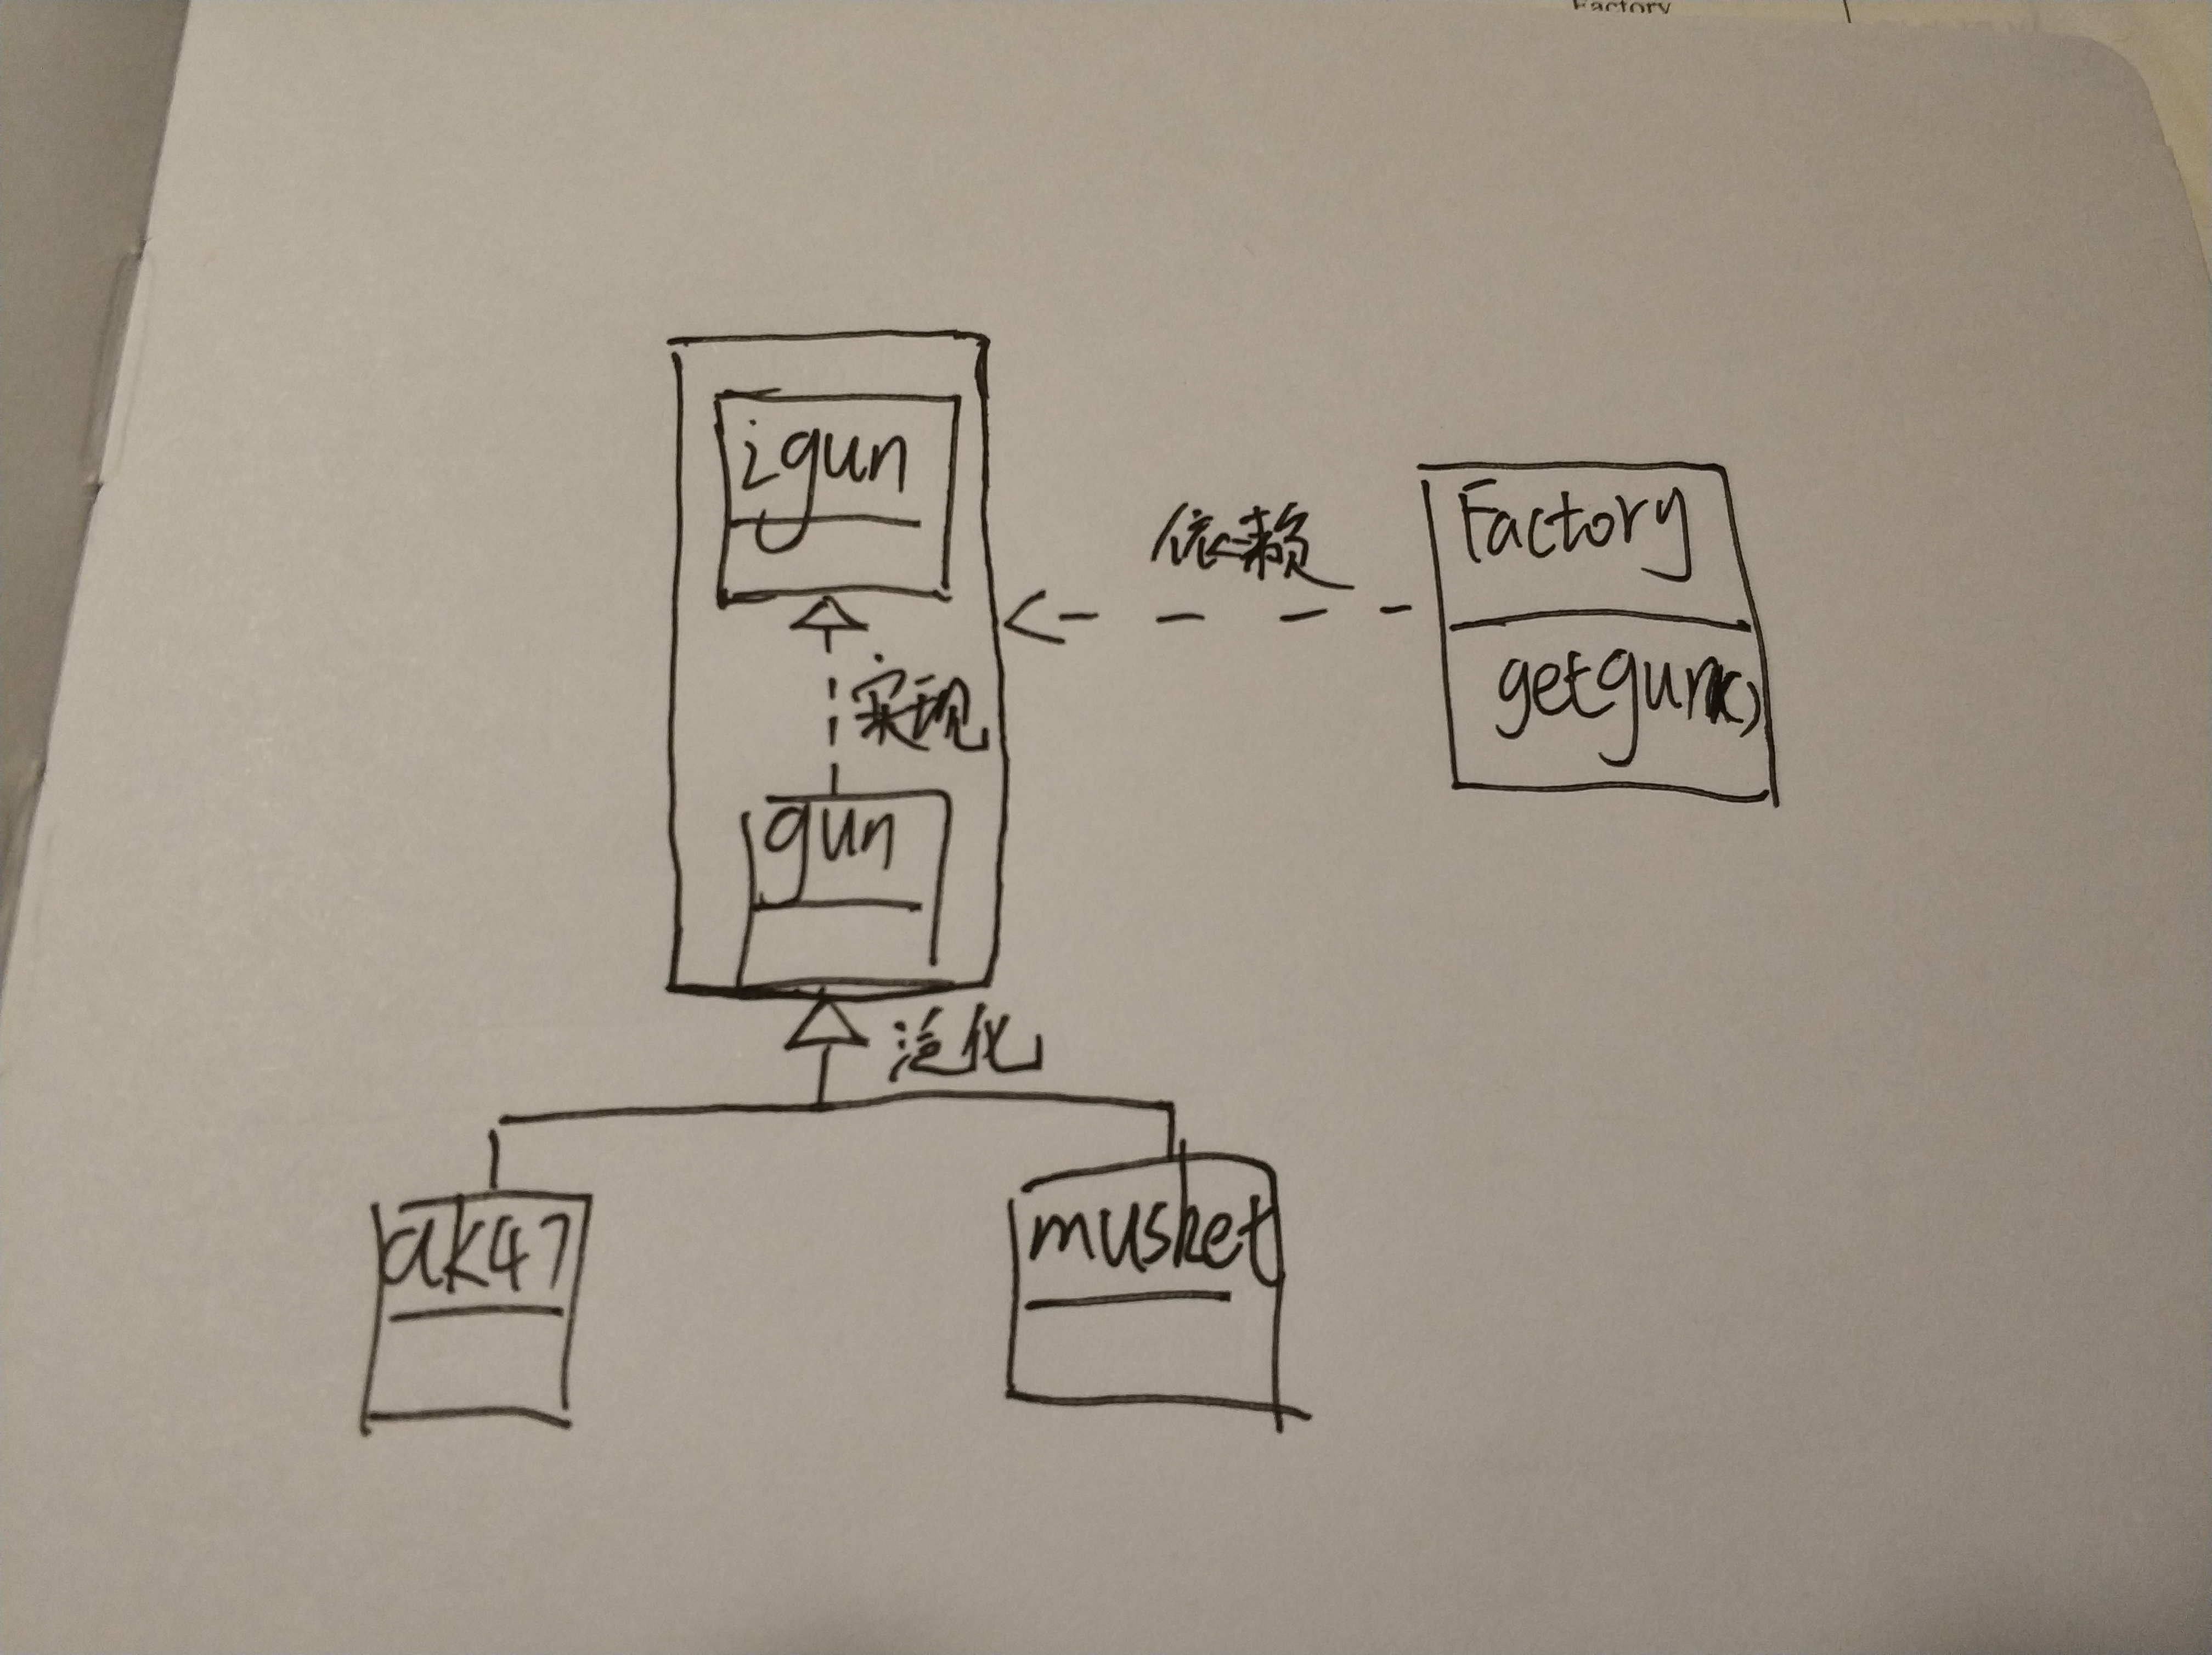 Factory
igun
依赖
Factory
getgun()
实现
gun
泛化
ak47
musket